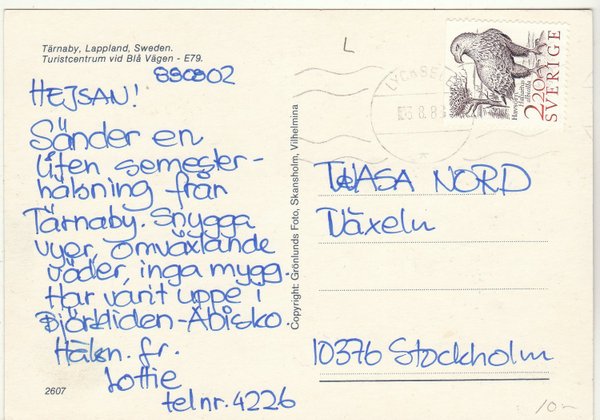 Tärnaby, Lappland, Sweden.
Turistcentrum vid Blå Vägen - E79.
880802
HEJSAN!
Sänder en
liten semester-
hälsning från
Tärnaby. Snygga
vyer, omväxlande
väder, inga mygg.
Har varit uppe i
Björkliden-Abisko
Hälsn. fr.
Lottie
telnr. 4226
2607
Copyright: Grönlunds Foto, Skansholm, Vilhelmina
L
LYCKSELE
SVERIGE
2.20
WASA NORD
Växeln
10376 Stockholm
10:-